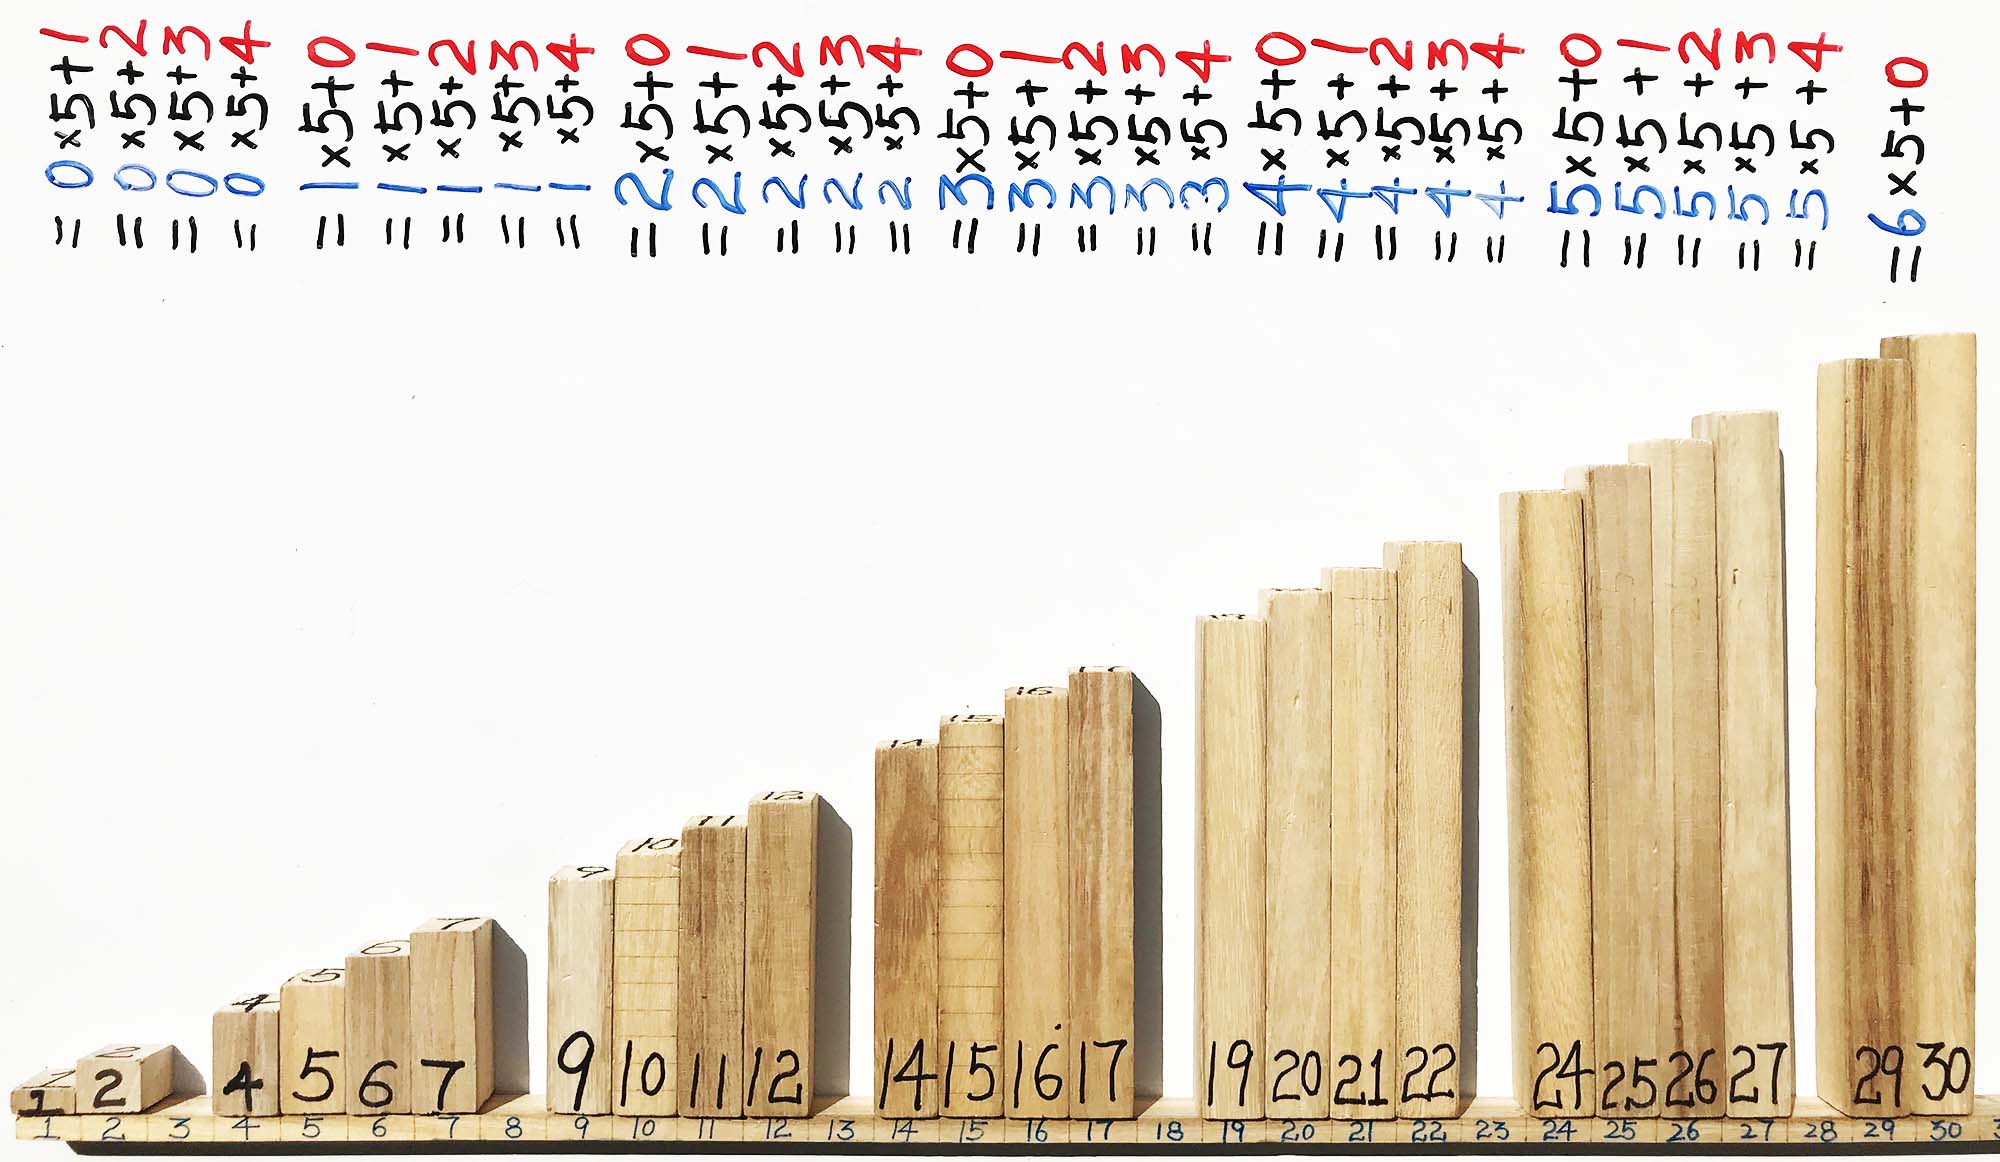 =0×5+1
=0×5+2
=0×5+3
=0×5+4
=1×5+0
=1×5+1
=1×5+2
=1×5+3
=1×5+4
=2×5+0
=2×5+1
=2×5+2
=2×5+3
=2×5+4
=3×5+0
=3×5+1
=3×5+2
=3×5+3
=3×5+4
=4×5+0
=4×5+1
=4×5+2
=4×5+3
=4×5+4
=5×5+0
=5×5+1
=5×5+2
=5×5+3
=5×5+4
=6×5+0
1 2 4 5 6 7 9 10 11 12 14 15 16
1 2 4 5 6 7 9 10 11 12 14 15 16 17 19 20 21 22 24 25 26 27 29 30
1 2 3 4 5 6 7 8 9 10 11 12 13 14 15 16 17 18 19 20 21 22 23 24 25 26 27 28 29 30